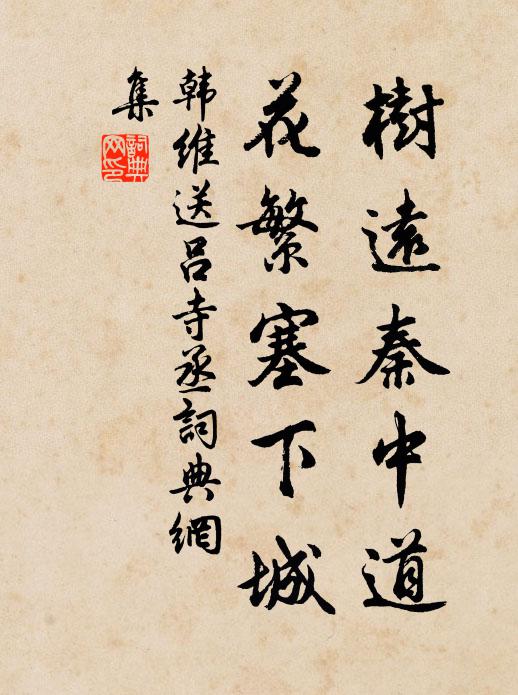 樹遠秦中道
花繁塞下城
韩維送吕寺丞詞典網
集
詞典网印